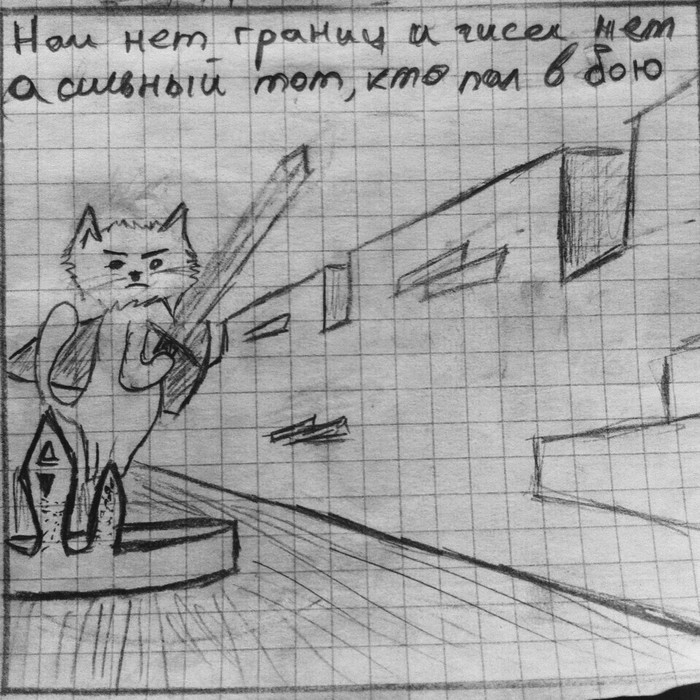 Нам нет границ и чисел нет
а сильный тот, кто пал в бою